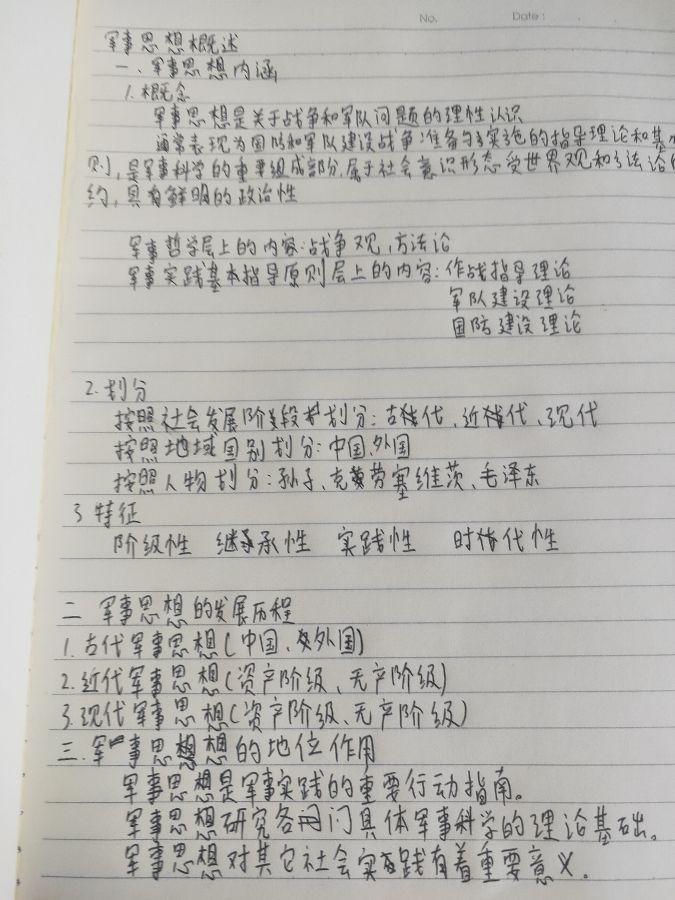 No. Date:
军事思想概述
一、军事思想内涵
1.概念
军事思想是关于战争和军队问题的理性认识
通常表现为国防和军队建设战争准备与实施的指导理论和基本
则,是军事科学的重要组成部分,属于社会意识形态受世界观和方法论的
约,具有鲜明的政治性
军事哲学层上的内容:战争观,方法论
军事实践基本指导原则层上的内容:作战指导理论
军队建设理论
国防建设理论
2.划分
按照社会发展阶段划分:古代、近代、现代
按照地域国别划分:中国、外国
按照人物划分:孙子、克劳塞维茨、毛泽东
3特征
阶级性 继承性 实践性 时代性
二 军事思想的发展历程
1.古代军事思想(中国、外国)
2.近代军事思想(资产阶级、无产阶级)
3.现代军事思想(资产阶级、无产阶级)
三.军事思想的地位作用
军事思想是军事实践的重要行动指南。
军事思想研究各门具体军事科学的理论基础。
军事思想对其它社会实践有着重要意义。